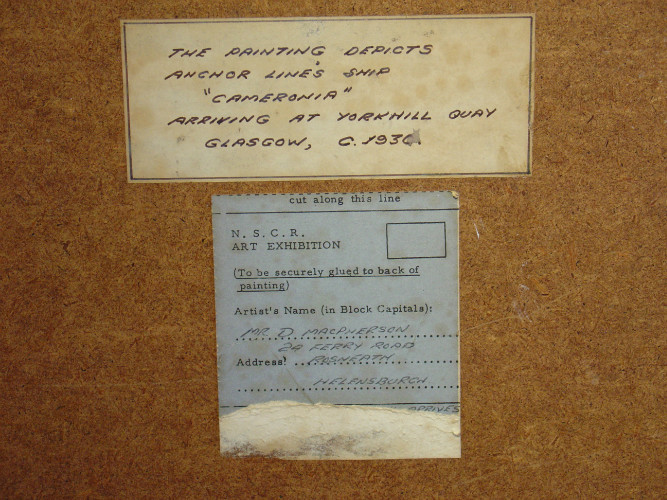 THE PAINTING DEPICTS
ANCHOR LINE'S SHIP
"CAMERONIA"
ARRIVING AT YORKHILL QUAY
GLASGOW, C. 1930.
cut along this line
N. S. C. R.
ART EXHIBITION
(To be securely glued to back of
painting)
Artist's Name (in Block Capitals):
MR. D. MACPHERSON
24 FERRY ROAD
Address: ROSNEATH
HELENSBURGH
ARRIVES